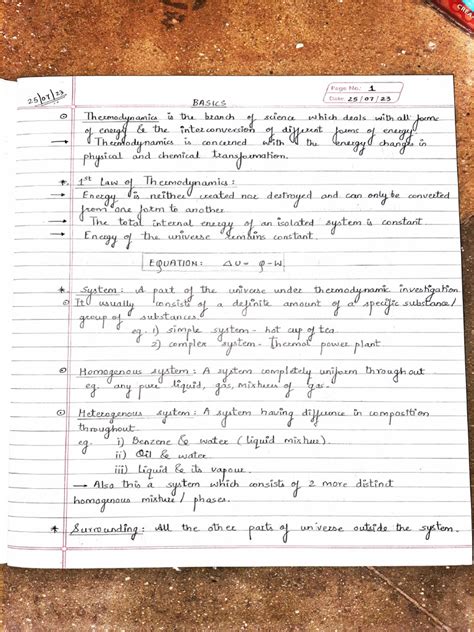 25/07/23
Page No: 1
Date: 25/07/23
BASICS
Thermodynamics is the branch of science which deals with all forms
of energy & the interconversion of different forms of energy
→ Thermodynamics is concerned with the energy changes in
physical and chemical transformation.
*. 1st Law of Thermodynamics:
→ Energy is neither created nor destroyed and can only be converted
from one form to another.
→ The total internal energy of an isolated system is constant.
→ Energy of the universe remains constant.
EQUATION: ΔU = Q-W
* System: A part of the universe under thermodynamic investigation.
It usually consists of a definite amount of a specific substance/
group of substances.
eg. 1) simple system - hot cup of tea
2) complex system - thermal power plant
Homogenous system: A system completely uniform throughout
eg. any pure liquid, gas, mixture of gas.
Heterogenous system: A system having difference in composition
throughout.
eg. i) Benzene & water (liquid mixture).
ii) Oil & water
iii) Liquid & its vapour.
→ Also this a system which consists of 2 more distinct
homogenous mixture / phases.
* Surrounding: All the other parts of universe outside the system.